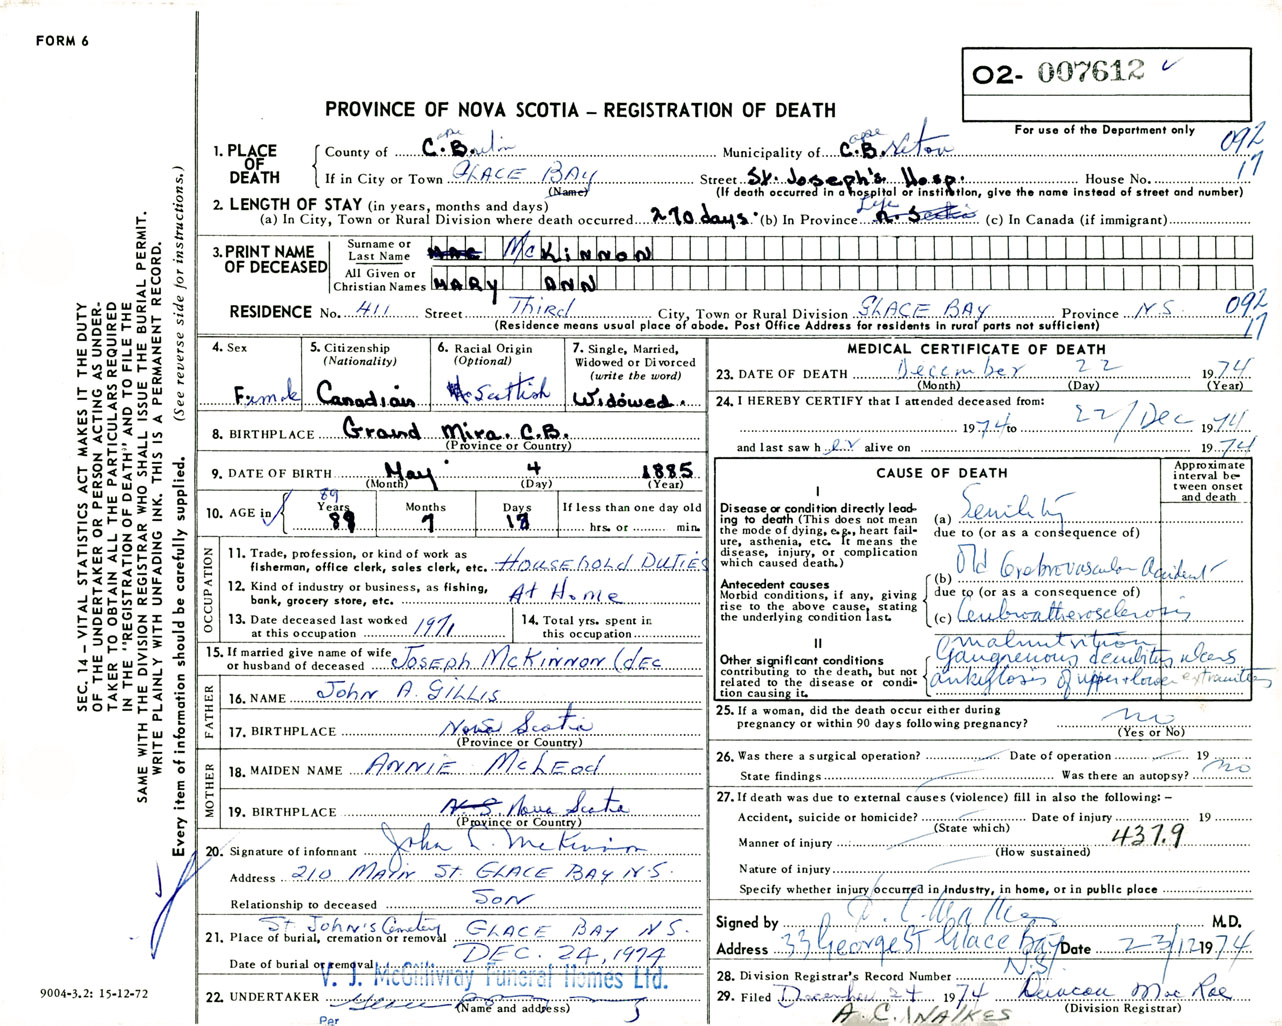 FORM 6
O2- 007612
PROVINCE OF NOVA SCOTIA – REGISTRATION OF DEATH
For use of the Department only
092
17
1. PLACE OF DEATH
County of Cape Breton
Municipality of Cape Breton
If in City or Town GLACE BAY
(Name)
Street St. Joseph's Hosp. House No.
(If death occurred in a hospital or institution, give the name instead of street and number)
2. LENGTH OF STAY (in years, months and days)
(a) In City, Town or Rural Division where death occurred 270 days (b) In Province Life (c) In Canada (if immigrant)
3. PRINT NAME OF DECEASED
Surname or Last Name Mac McKINNON
All Given or Christian Names MARY ANN
RESIDENCE No. 411 Street Third City, Town or Rural Division GLACE BAY Province N.S. 092
17
(Residence means usual place of abode. Post Office Address for residents in rural parts not sufficient)
4. Sex
Female
5. Citizenship
(Nationality)
Canadian
6. Racial Origin
(Optional)
Scottish
7. Single, Married,
Widowed or Divorced
(write the word)
Widowed.
8. BIRTHPLACE Grand Mira. C.B.
(Province or Country)
9. DATE OF BIRTH May 4 1885
(Month) (Day) (Year)
10. AGE in
89
Years Months Days If less than one day old
89 7 18 hrs. or min.
OCCUPATION
11. Trade, profession, or kind of work as
fisherman, office clerk, sales clerk, etc. HOUSEHOLD DUTIES
12. Kind of industry or business, as fishing,
bank, grocery store, etc. At Home
13. Date deceased last worked
at this occupation 1971
14. Total yrs. spent in
this occupation
15. If married give name of wife
or husband of deceased JOSEPH McKINNON (dec
FATHER
16. NAME John A. GILLIS
17. BIRTHPLACE Nova Scotia
(Province or Country)
MOTHER
18. MAIDEN NAME ANNIE McLEod
19. BIRTHPLACE N.S. Nova Scotia
(Province or Country)
20. Signature of informant John McKinnon
Address 210 MAIN St. GLACE BAY N.S.
Relationship to deceased SON
St John's Cemetery
21. Place of burial, cremation or removal GLACE BAY N.S.
Date of burial or removal DEC. 24, 1974
V. J. McGillivray Funeral Homes Ltd.
22. UNDERTAKER
(Name and address)
Per
MEDICAL CERTIFICATE OF DEATH
23. DATE OF DEATH December 22 1974
(Month) (Day) (Year)
24. I HEREBY CERTIFY that I attended deceased from:
1974 to 22/Dec 1974
and last saw her alive on 1974
CAUSE OF DEATH
Approximate interval between onset and death
I
Disease or condition directly leading to death (This does not mean the mode of dying, e.g., heart failure, asthenia, etc. It means the disease, injury, or complication which caused death.)
(a) Senility
due to (or as a consequence of)
Antecedent causes
Morbid conditions, if any, giving rise to the above cause, stating the underlying condition last.
(b) Old Cerebrovascular Accident
due to (or as a consequence of)
(c) Cerebroatherosclerosis
II
Other significant conditions contributing to the death, but not related to the disease or condition causing it.
malnutrition
gangrenous decubitus ulcers
ankylosis of upper + lower extremities
25. If a woman, did the death occur either during
pregnancy or within 90 days following pregnancy? no
(Yes or No)
26. Was there a surgical operation? Date of operation 19
State findings Was there an autopsy? no
27. If death was due to external causes (violence) fill in also the following: –
Accident, suicide or homicide? Date of injury 19
(State which)
Manner of injury 437.9
(How sustained)
Nature of injury
Specify whether injury occurred in industry, in home, or in public place
Signed by M.D.
Address 33 George St Glace Bay N.S. Date 23/12 1974
28. Division Registrar's Record Number
29. Filed December 24 1974 Duncan MacRae
(Division Registrar)
A. C. WALKES
SEC. 14 – VITAL STATISTICS ACT MAKES IT THE DUTY
OF THE UNDERTAKER OR PERSON ACTING AS UNDERTAKER
TO OBTAIN ALL THE PARTICULARS REQUIRED
IN THE "REGISTRATION OF DEATH" AND TO FILE THE
SAME WITH THE DIVISION REGISTRAR WHO SHALL ISSUE THE BURIAL PERMIT.
WRITE PLAINLY WITH UNFADING INK. THIS IS A PERMANENT RECORD.
Every item of information should be carefully supplied. (See reverse side for instructions.)
9004-3.2: 15-12-72